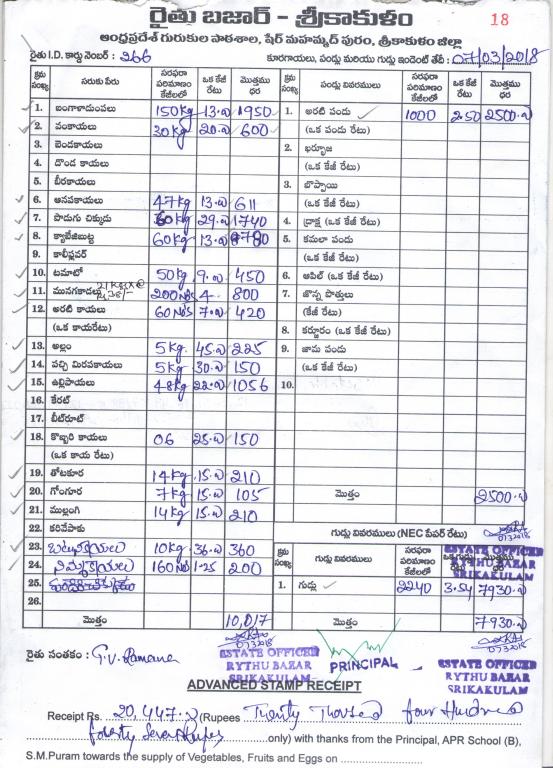 రైతు బజార్ - శ్రీకాకుళం
18
ఆంధ్రప్రదేశ్ గురుకుల పాఠశాల, షేర్ మహమ్మద్ పురం, శ్రీకాకుళం జిల్లా
రైతు I.D. కార్డు నెంబర్ : 266
కూరగాయలు, పండ్లు మరియు గుడ్లు ఇండెంట్ తేది : 07/03/2018
క్రమ సంఖ్య సరుకు పేరు సరఫరా పరిమాణం కేజీలలో ఒక కేజీ రేటు మొత్తము ధర
1. బంగాళాదుంపలు 150kg 13.00 1950
2. వంకాయలు 30kg 20.00 600
3. బెండకాయలు
4. దొండ కాయలు
5. బీరకాయలు
6. ఆనపకాయలు 47kg 13.00 611
7. పొడుగు చిక్కుడు 60kg 29.00 1740
8. క్యాబేజిబుట్ట 60kg 13.00 780
9. కాలీఫ్లవర్
10. టమాటో 50kg 9.00 450
11. మునగకాడలు 200 Nos 4 800
12. అరటి కాయలు 60 Nos 7.00 420
(ఒక కాయరేటు)
13. అల్లం 5kg 45.00 225
14. పచ్చి మిరపకాయలు 5kg 30.00 150
15. ఉల్లిపాయలు 48kg 22.00 1056
16. కేరట్
17. బీట్‌రూట్
18. కొబ్బరి కాయలు 06 25.00 150
(ఒక కాయ రేటు)
19. తోటకూర 14kg 15.00 210
20. గోంగూర 7kg 15.00 105
21. ముల్లంగి 14kg 15.00 210
22. కరివేపాకు
23. 10kg 36.00 360
24. నిమ్మకాయలు 160 Nos 1.25 200
25.
26.
మొత్తం 10,017
క్రమ సంఖ్య పండ్లు వివరములు సరఫరా పరిమాణం కేజీలలో ఒక కేజీ రేటు మొత్తము ధర
1. అరటి పండు 1000 2.50 2500.00
(ఒక పండు రేటు)
2. ఖర్బూజ
(ఒక కేజీ రేటు)
3. బొప్పాయి
(ఒక కేజీ రేటు)
4. ద్రాక్ష (ఒక కేజీ రేటు)
5. కమలా పండు
(ఒక కేజీ రేటు)
6. ఆపిల్ (ఒక కేజీ రేటు)
7. జొన్న పొత్తులు
(కేజీ రేటు)
8. కర్జూరం (ఒక కేజీ రేటు)
9. జామ పండు
(ఒక కేజీ రేటు)
10.
మొత్తం 2500.00
గుడ్లు వివరములు (NEC పేపర్ రేటు)
క్రమ సంఖ్య గుడ్లు వివరములు సరఫరా పరిమాణం కేజీలలో
ESTATE OFFICER
RYTHU BAZAR
SRIKAKULAM
1. గుడ్లు 2240 3.54 7930.00
మొత్తం 7930.00
రైతు సంతకం : G.V. Ramana
ESTATE OFFICER
RYTHU BAZAR
SRIKAKULAM
PRINCIPAL
ESTATE OFFICER
RYTHU BAZAR
SRIKAKULAM
ADVANCED STAMP RECEIPT
Receipt Rs. 20,447.00 (Rupees Twenty Thousand four Hundred
fourty Seven Rupees only) with thanks from the Principal, APR School (B),
S.M.Puram towards the supply of Vegetables, Fruits and Eggs on